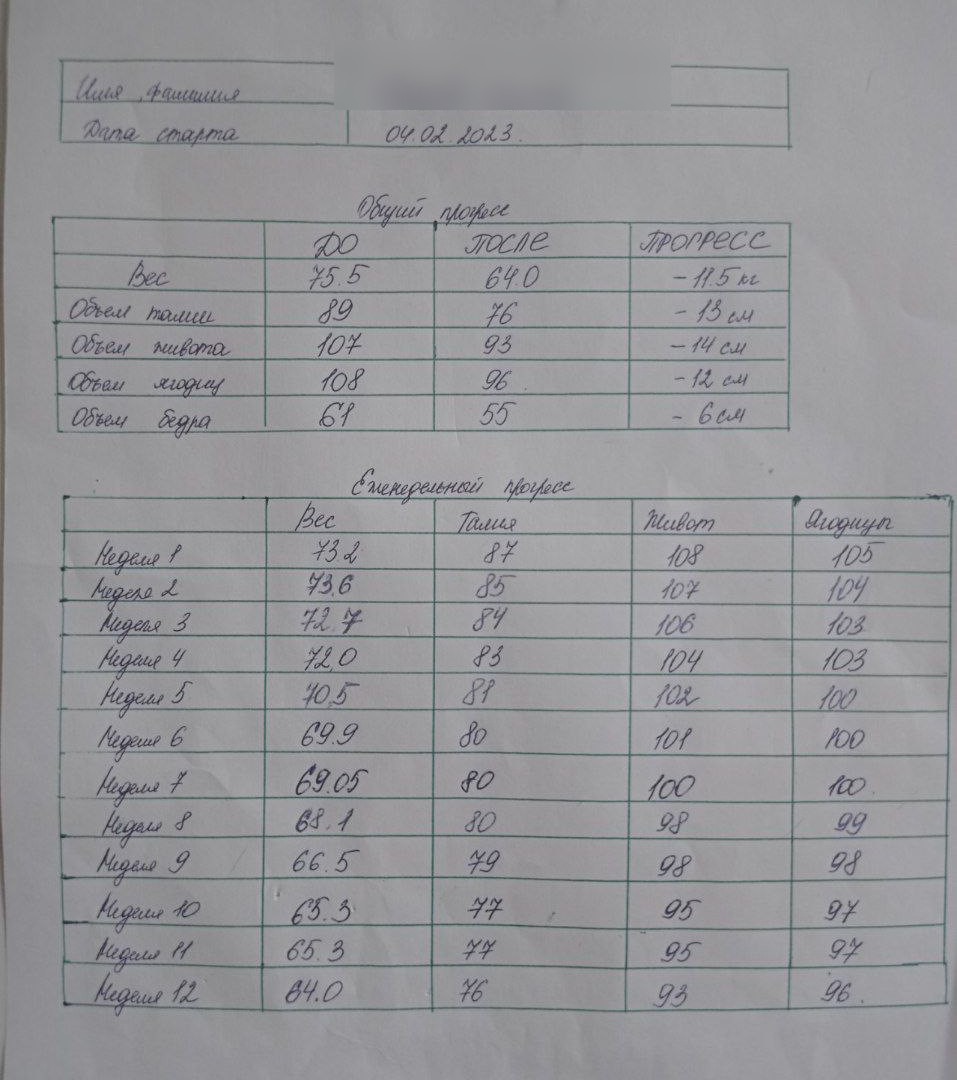 Имя, фамилия
Дата старта 04.02.2023.
Общий прогресс
ДО ПОСЛЕ ПРОГРЕСС
Вес 75.5 64.0 -11.5 кг
Объем талии 89 76 -13 см
Объем живота 107 93 -14 см
Объем ягодиц 108 96. -12 см
Объем бедра 61 55 -6 см
Еженедельный прогресс
Вес Талия Живот Ягодицы
Неделя 1 73.2 87 108 105
Неделя 2 73.6 85 107 104
Неделя 3 72.7 84 106 103
Неделя 4 72,0 83 104 103
Неделя 5 70,5 81 102 100
Неделя 6 69.9 80 101 100
Неделя 7 69.05 80 100 100.
Неделя 8 68.1 80 98 99
Неделя 9 66.5 79 98 98
Неделя 10 65.3 77 95 97
Неделя 11 65.3 77 95 97
Неделя 12 64.0 76 93 96.